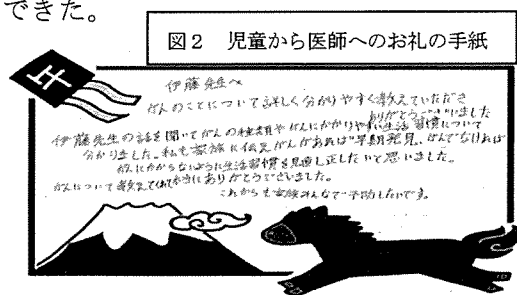 できた。
図2 児童から医師へのお礼の手紙
伊藤先生へ
がんのことについて詳しく分かりやすく教えていただき
ありがとうございました
伊藤先生の話を聞いてがんの種類やがんにかかりやすい生活習慣について
分かりました。私も家族に伝えがんがあれば早期発見、がんでなければ
がんにかからないように生活習慣を見直し正したいと思いました。
がんについて教えてくれて本当にありがとうございました。
これからも家族みんなで予防したいです。